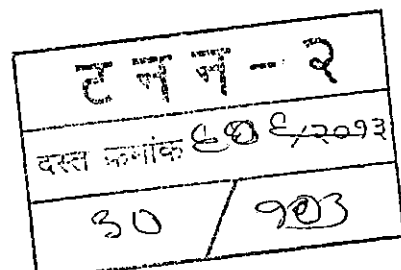 ट न न - २
दस्त क्रमांक ६०६/२०१३
३० / १०३